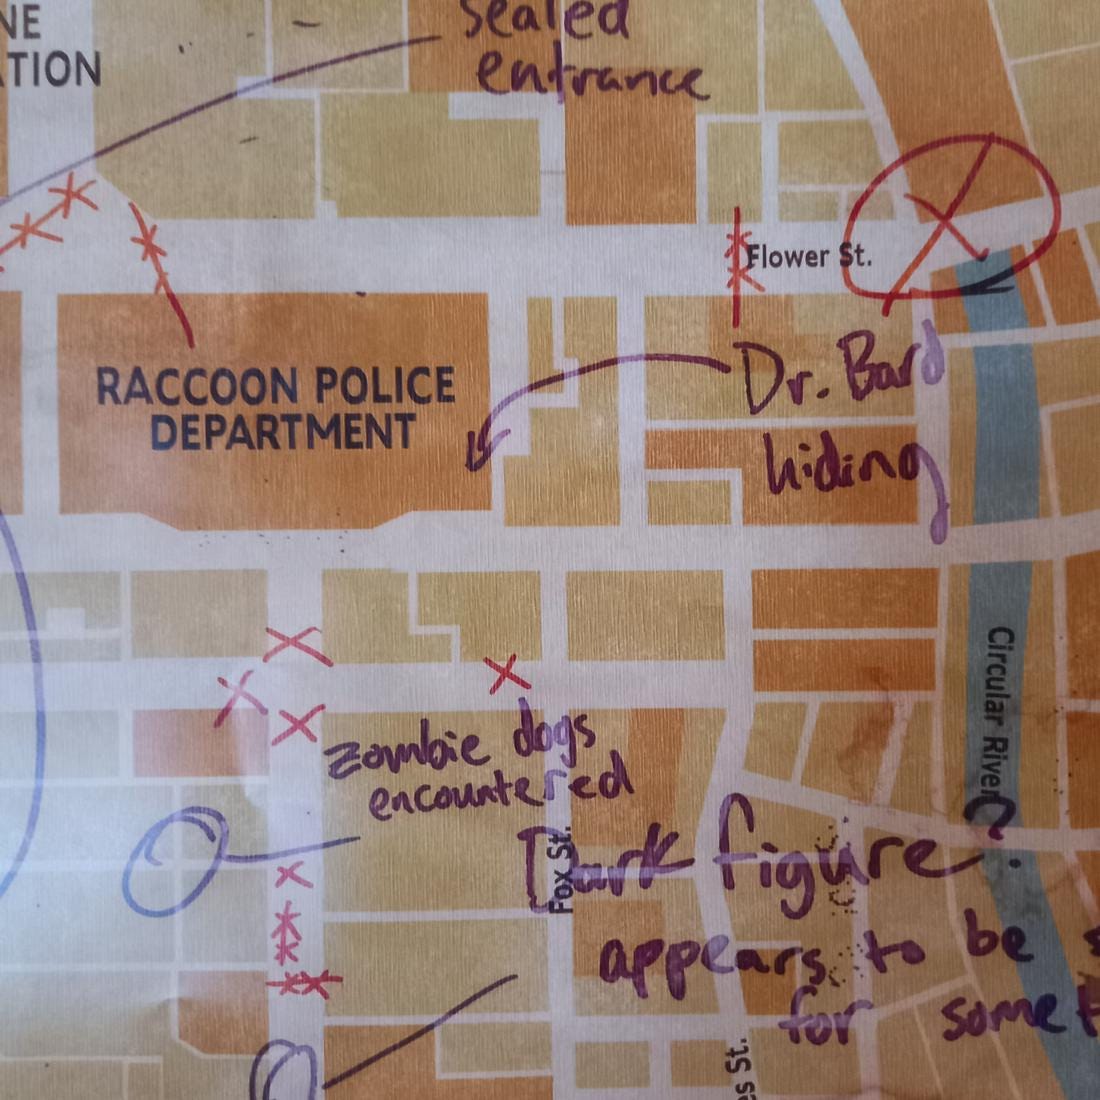 NE
TION
sealed
entrance
Flower St.
RACCOON POLICE
DEPARTMENT
Dr. Bard
hiding
Circular River
zombie dogs
encountered
Fox St.
Dark figure.
appears to be
for